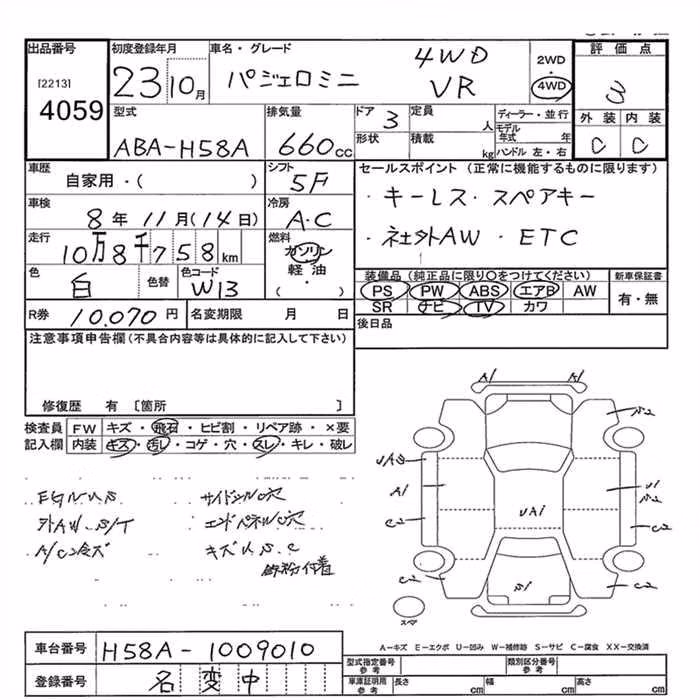 出品番号 初度登録年月 車名・グレード 評価点
[2213] 4059
23 10月 パジェロミニ 4WD VR 2WD・4WD 3
型式 排気量 ドア 定員 ディーラー・並行 外装 内装
ABA-H58A 660cc 3 人 モデル年式 年 C C
形状 積載 kg ハンドル 左・右
車歴 シフト セールスポイント (正常に機能するものに限ります)
自家用・( ) 5F
・キーレス・スペアキー
車検 冷房
8年 11月(14日) A・C
・社外AW・ETC
走行 燃料
10万8千758km ガソリン・軽油・( )
色 色替 色コード
白 W13
装備品 (純正品に限り○をつけてください) 新車保証書
PS PW ABS エアB AW 有・無
SR ナビ TV カワ
R券 10.070円 名変期限 月 日
後日品
注意事項申告欄(不具合内容等は具体的に記入して下さい)
修復歴 有 [箇所 ]
検査員記入欄 FW キズ・飛石・ヒビ割・リペア跡・×要
内装 キズ・汚レ・コゲ・穴・スレ・キレ・破レ
外AW.S/T エンドパネル穴
キズU.S.C
鉄粉付着
A1 A1
A1 U1
C2 C2
UA1
C2 S1 C2
A-キズ E-エクボ U-凹み W-補修跡 S-サビ C-腐食 XX-交換済
車台番号 H58A-1009010
登録番号 名変中
型式指定番号 参考 類別区分番号 参考
車庫証明用 参考 長さ cm 幅 cm 高さ cm